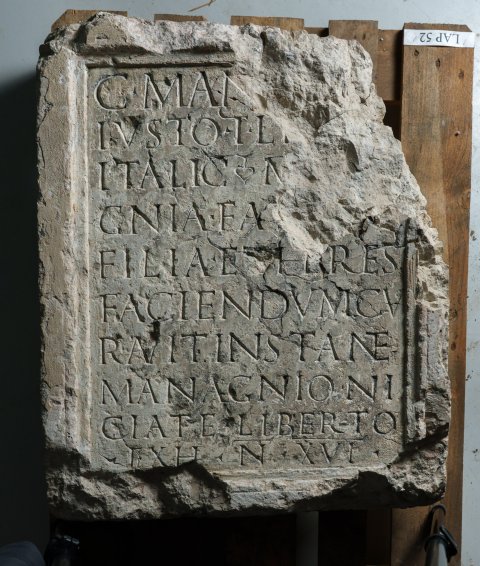 C·MAN
IVSTO·
ITALIC M
GNIA·FA
FILIA·ET HERES
FACIENDVM·CV
RAVIT·INSTANTE
MANAGNIO·NI
CIATE·LIBERTO
EXH·N·XVI·
LAP 52